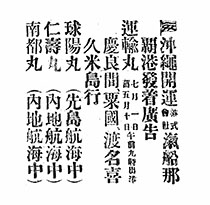 沖繩開運株式會社滊船那
覇港發着廣告
運輸丸 七月一日 舊五月十日 午前九時出港
慶良間粟國渡名喜
久米島行
球陽丸(先島航海中)
仁壽丸(內地航海中)
南都丸(內地航海中)